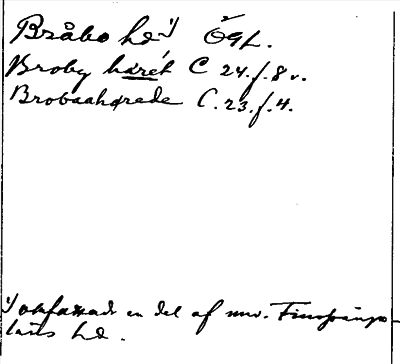 Bråbo hd 1) Ögl.
Broby häret C 24. f. 8 v.
Brobaahærede C. 23. f. 4.
1) omfattade en del af nuv. Finspånga-
läns hd.